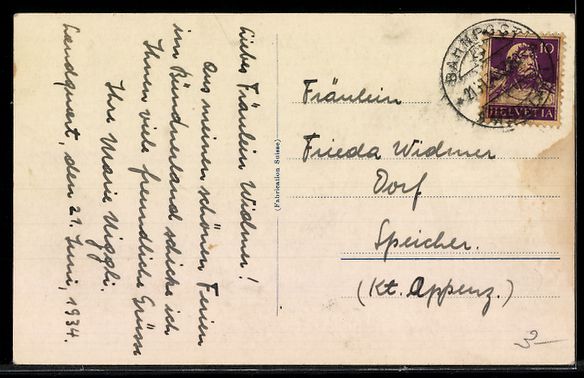 Liebes Fräulein Widmer!
Aus meinen schönen Ferien
im Bündnerland schicke ich
Ihnen viele freundliche Grüsse
Ihre Marie Niggli.
Landquart, den 21. Juni, 1934.
(Fabrication Suisse)
BAHNPOST
10
HELVETIA
Fräulein
Frieda Widmer
Dorf
Speicher.
(Kt. Appenz.)